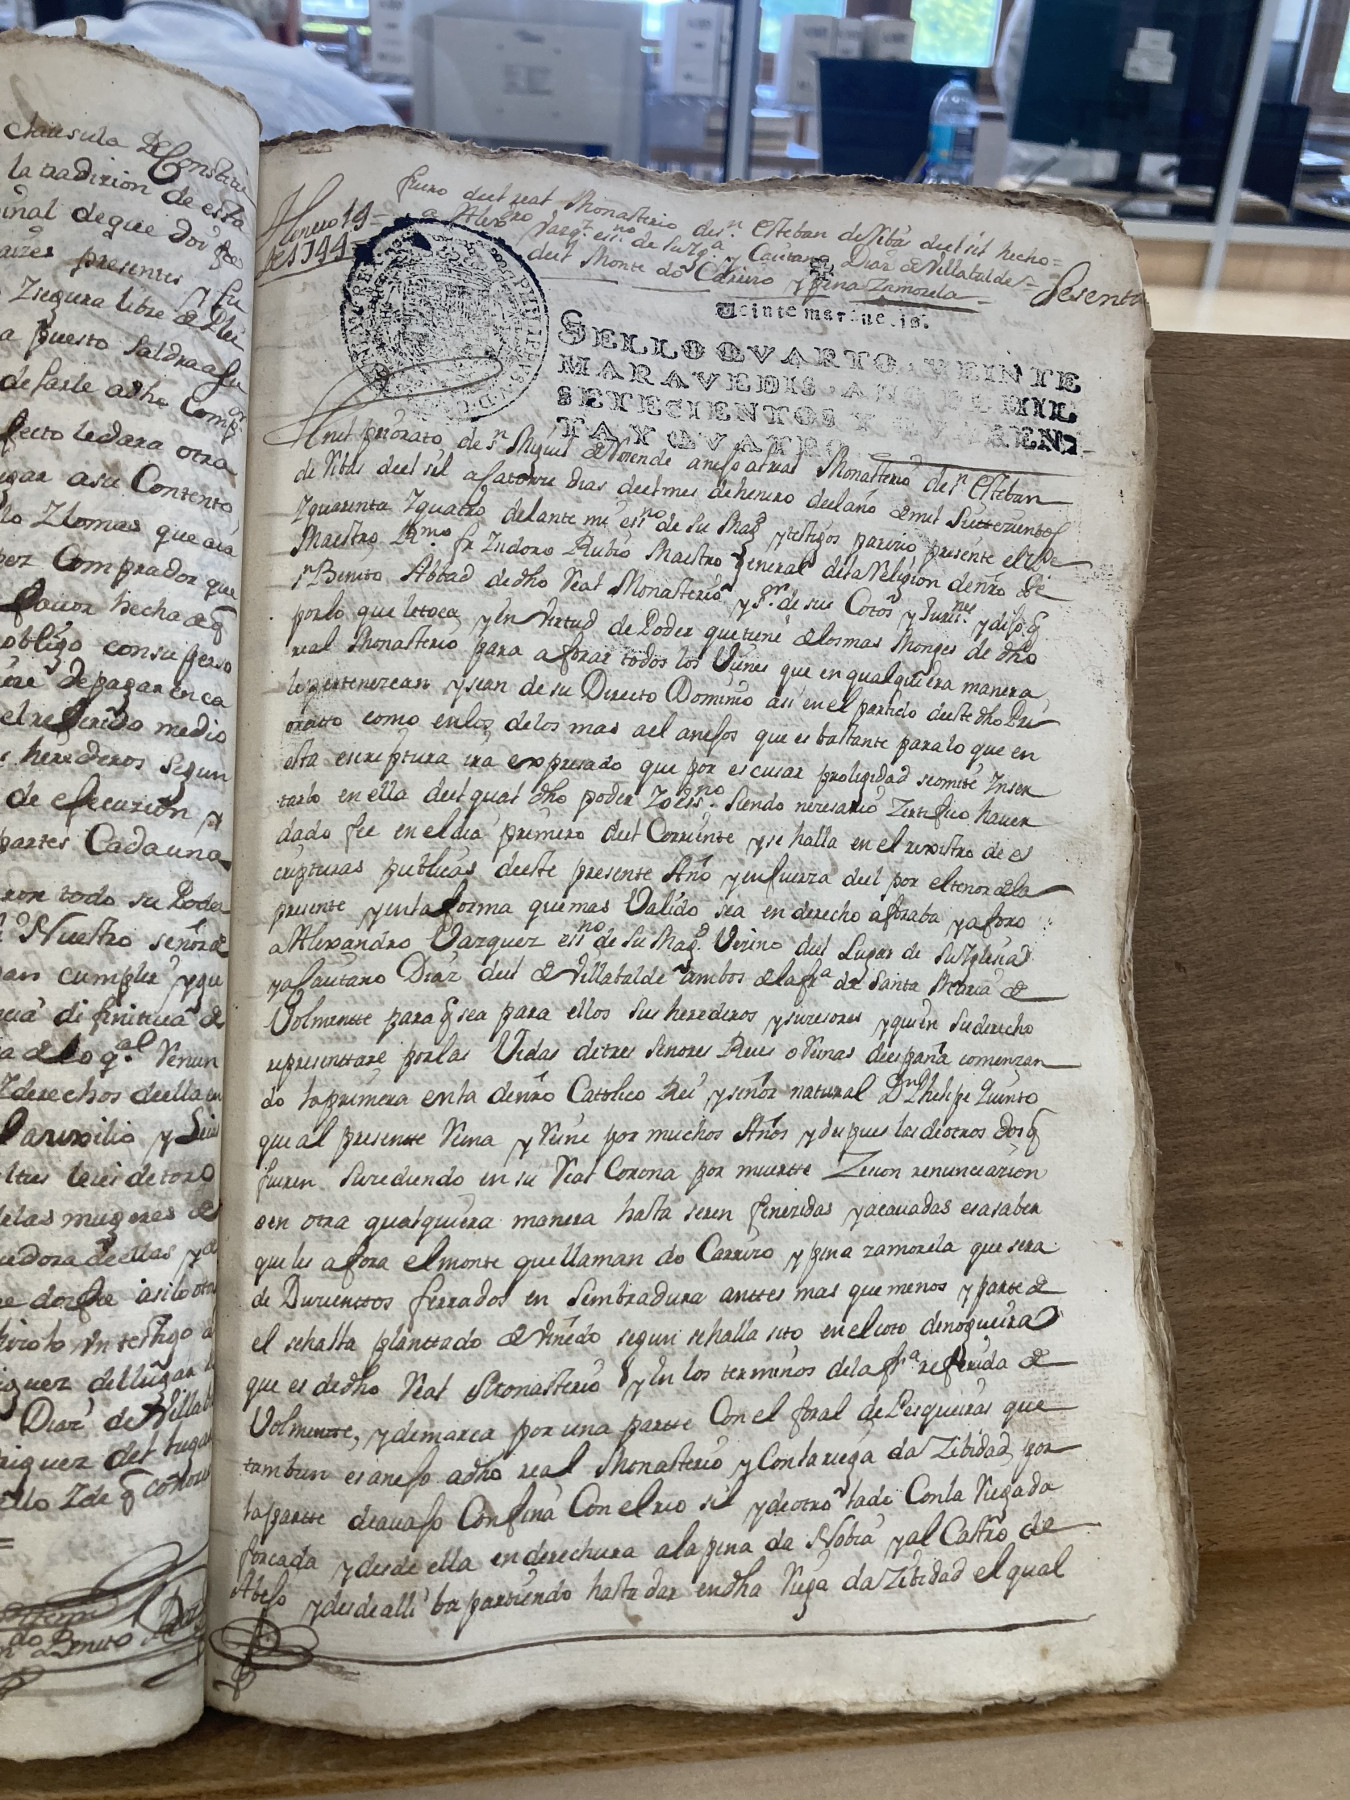 clausula de Constitu
la tradizion de esta
ginal de que doi fee
presentes y fu
Zsegura libre de Plei
a puesto saldra a su
de sarle a dha Comp.ra
fecto le dara otra
ugar a su Contento
lo Zlomas que aia
por Comprador que
favor hecha de q
obligo con su perso
de pagar en ca
el referido medio
s herederos segun
de efecuzion y
partes Cada una
ron todo su Poder
Nuestro señor
an cumplir y que
difinitiua de
a de lo q.al Renun
Zderechos de ella
l auxilio y Leies
ltus leies de toro
delas mugeres de
uedora de ellas y
ue doi fee asi lo oto
hizolo un testigo a
iguez del lugar
Diaz de Villab
riguez del lugar
ello Zde q conozco
Benito
Henero 19
de 1744
fuero del real Monasterio de s.n Esteban de ribas del sil hecho
a Alex.ro Vazq.z es.no de su Mg.d y Caietano Diaz de Villabalde
del Monte do Carrizo y pena Zamorela
Sesenta
Veinte maravedis.
SELLO QVARTO, VEINTE
MARAVEDIS, AÑO DE MIL
SETECIENTOS Y QVAREN-
TA Y QVATRO.
En el priorato de s.n Miguel de Rosende anejo al real Monasterio de s.n Esteban
de Ribas del sil a catorze dias del mes de henero del año de mil settezientos
Zquarenta Zquatro delante mi es.no de su Mag.d y testigos parezio presente el
Maestro R.mo fr Zsidoro Rubio Maestro general de la Religion de nro Pe
s.n Benito Abbad de dho Real Monasterio y s.or de sus Cotos y Juris.nes y dijo q
por lo que le toca y en virtud de Poder que tiene de los mas Monges de dho
real Monasterio para aforar todos los Vienes que en qualquiera manera
le pertenezcan y sean de su Directo Dominio asi en el partido de este dho Pri
oratto como en los de los mas a el anejos que es bastante para lo que en
esta escriptura ira expresado que por escusar prolijidad se omite Znser
tarlo en ella del qual dho poder Zo es.no siendo nezesario Zertifico haver
dado fee en el dia primero del Corriente y se halla en el rexistro de es
cripturas publicas de este presente Año y en fuerza del por el tenor de la
presente y en la forma que mas Valido sea en derecho aforaba y aforo
a Alexandro Vazquez es.no de su Mag.d Vezino del Lugar de su Yglesia
y a Cautano Diaz del de Villabalde ambos de la fr.a de Santa Maria de
Volmentte para q sea para ellos sus herederos y suzesores y quien su derecho
representtare por las Vidas de tres señores Reies o Reinas de españa comenzan
do la primera en la de nro Catolico Rei y señor natural D.n Phelipe Quinto
que al presente Reina y Reine por muchos Años y despues las de otros dos q
fueren suzediendo en su Real Corona por muertte Zecion renunciazion
o en otra qualquiera manera hasta seren fenezidas y acauadas es a saber
que les afora el monte que llaman do Carrizo y pena zamorela que sera
de Duzienttos ferrados en sembradura anttes mas que menos y parte de
el se halla planttado de viñedo segun se halla sito en el coto de nogueira
que es de dho Real Monasterio y en los terminos de la fr.a referida de
Volmentte, y demarca por una partte Con el foral de Pesqueiras que
tambien es anejo a dho real Monasterio y Con la riega da Zibidad por
la partte de auajo Confina Con el rio sil y de otro lado Con la Riegada
forcada y desde ella en derechura a la pena da Nobia y al Castro de
Abejo y desde alli ba partiendo hasta dar en dha Riega da Zibidad el qual